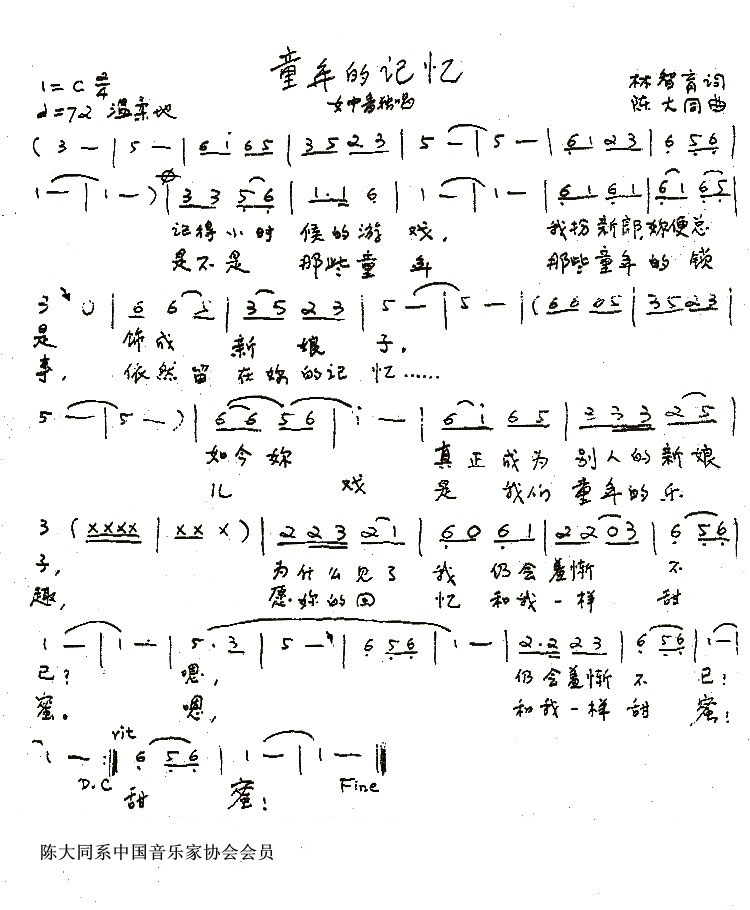 童年的记忆
1=C 2/4
女中音独唱
林智育词
♩=72 温柔地
陈大同曲
(3 — | 5 — | 6 i 6 5 | 3 5 2 3 | 5 — | 5 — | 6 1 2 3 | 6 5 6 |
1 — | 1 — ) | 3 3 5 6 | 1·1 6 | 1 — | 1 — | 6 1 6 1 | 6 1 6 5 |
记得小时候的游戏, 我扮新郎妳便总
是不是那些童年 那些童年的锁
3 0 | 6 6 5 | 3 5 2 3 | 5 — | 5 — | (6 6 0 5 | 3 5 2 3 |
是 饰成新娘子。
事, 依然留在妳的记忆……
5 — | 5 — ) | 6 6 5 6 | i — | 6 i 6 5 | 3 3 3 2 5 |
如今妳 真正成为别人的新娘
儿戏 是我们童年的乐
3 (X X X X | X X X) | 2 2 3 2 1 | 6 0 6 1 | 2 2 0 3 | 6 5 6 |
子, 为什么见了我仍会羞惭不
趣, 愿妳的回忆和我一样甜
1 — | 1 — | 5 · 3 | 5 — | 6 5 6 | 1 — | 2·2 2 3 | 6 5 6 | 1 — |
已? 嗯, 仍会羞惭不已?
蜜。 嗯, 和我一样甜蜜!
rit
1 — :‖ 6 5 6 | 1 — | 1 — ‖
D.C 甜蜜! Fine
陈大同系中国音乐家协会会员